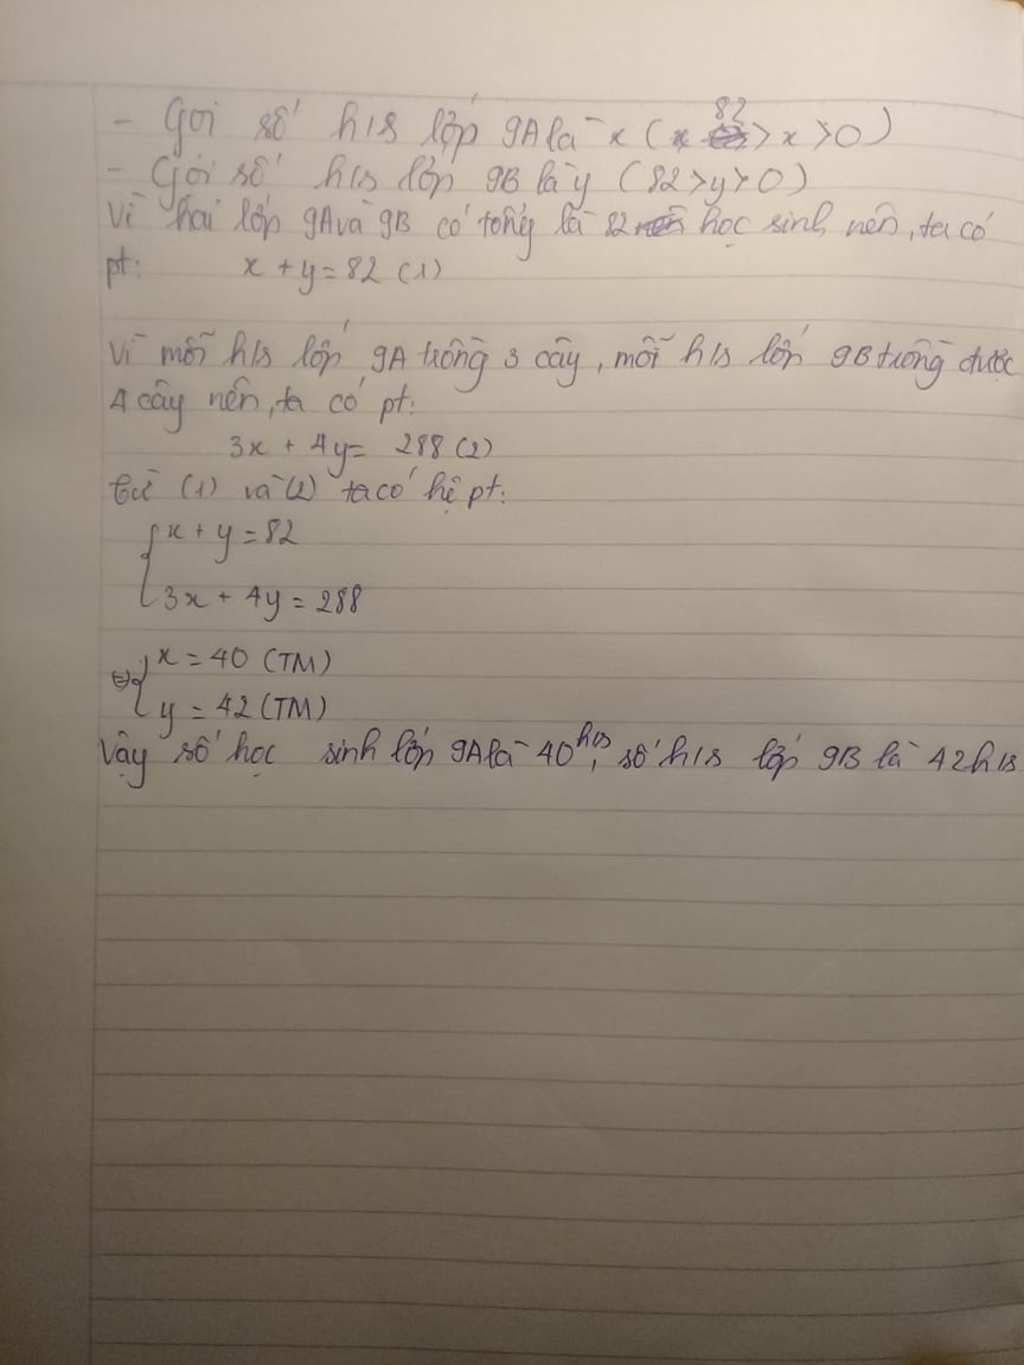 - Gọi số h/s lớp 9A là x ( x 82 > x > 0 )
- Gọi số h/s lớp 9B là y ( 82 > y > 0 )
Vì hai lớp 9A và 9B có tổng là 82 học sinh nên, ta có
pt: x + y = 82 (1)
Vì mỗi h/s lớp 9A trồng 3 cây, mỗi h/s lớp 9B trồng được
4 cây nên, ta có pt:
3x + 4y = 288 (2)
từ (1) và (2) ta có hệ pt:
{ x + y = 82
3x + 4y = 288
⇔ { x = 40 (TM)
y = 42 (TM)
Vậy số học sinh lớp 9A là 40 h/s, số h/s lớp 9B là 42 h/s